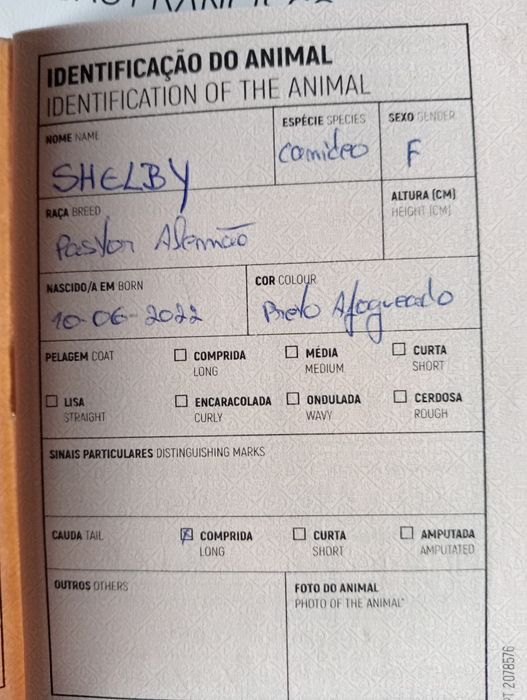 IDENTIFICAÇÃO DO ANIMAL
IDENTIFICATION OF THE ANIMAL
NOME NAME
SHELBY
ESPÉCIE SPECIES
Canideo
SEXO GENDER
F
RAÇA BREED
Pastor Alemão
ALTURA (CM)
HEIGHT (CM)
NASCIDO/A EM BORN
10-06-2022
COR COLOUR
Preto Afogueado
PELAGEM COAT
COMPRIDA
LONG
MÉDIA
MEDIUM
CURTA
SHORT
LISA
STRAIGHT
ENCARACOLADA
CURLY
ONDULADA
WAVY
CERDOSA
ROUGH
SINAIS PARTICULARES DISTINGUISHING MARKS
CAUDA TAIL
COMPRIDA
LONG
CURTA
SHORT
AMPUTADA
AMPUTATED
OUTROS OTHERS
FOTO DO ANIMAL
PHOTO OF THE ANIMAL*
PT 2078576